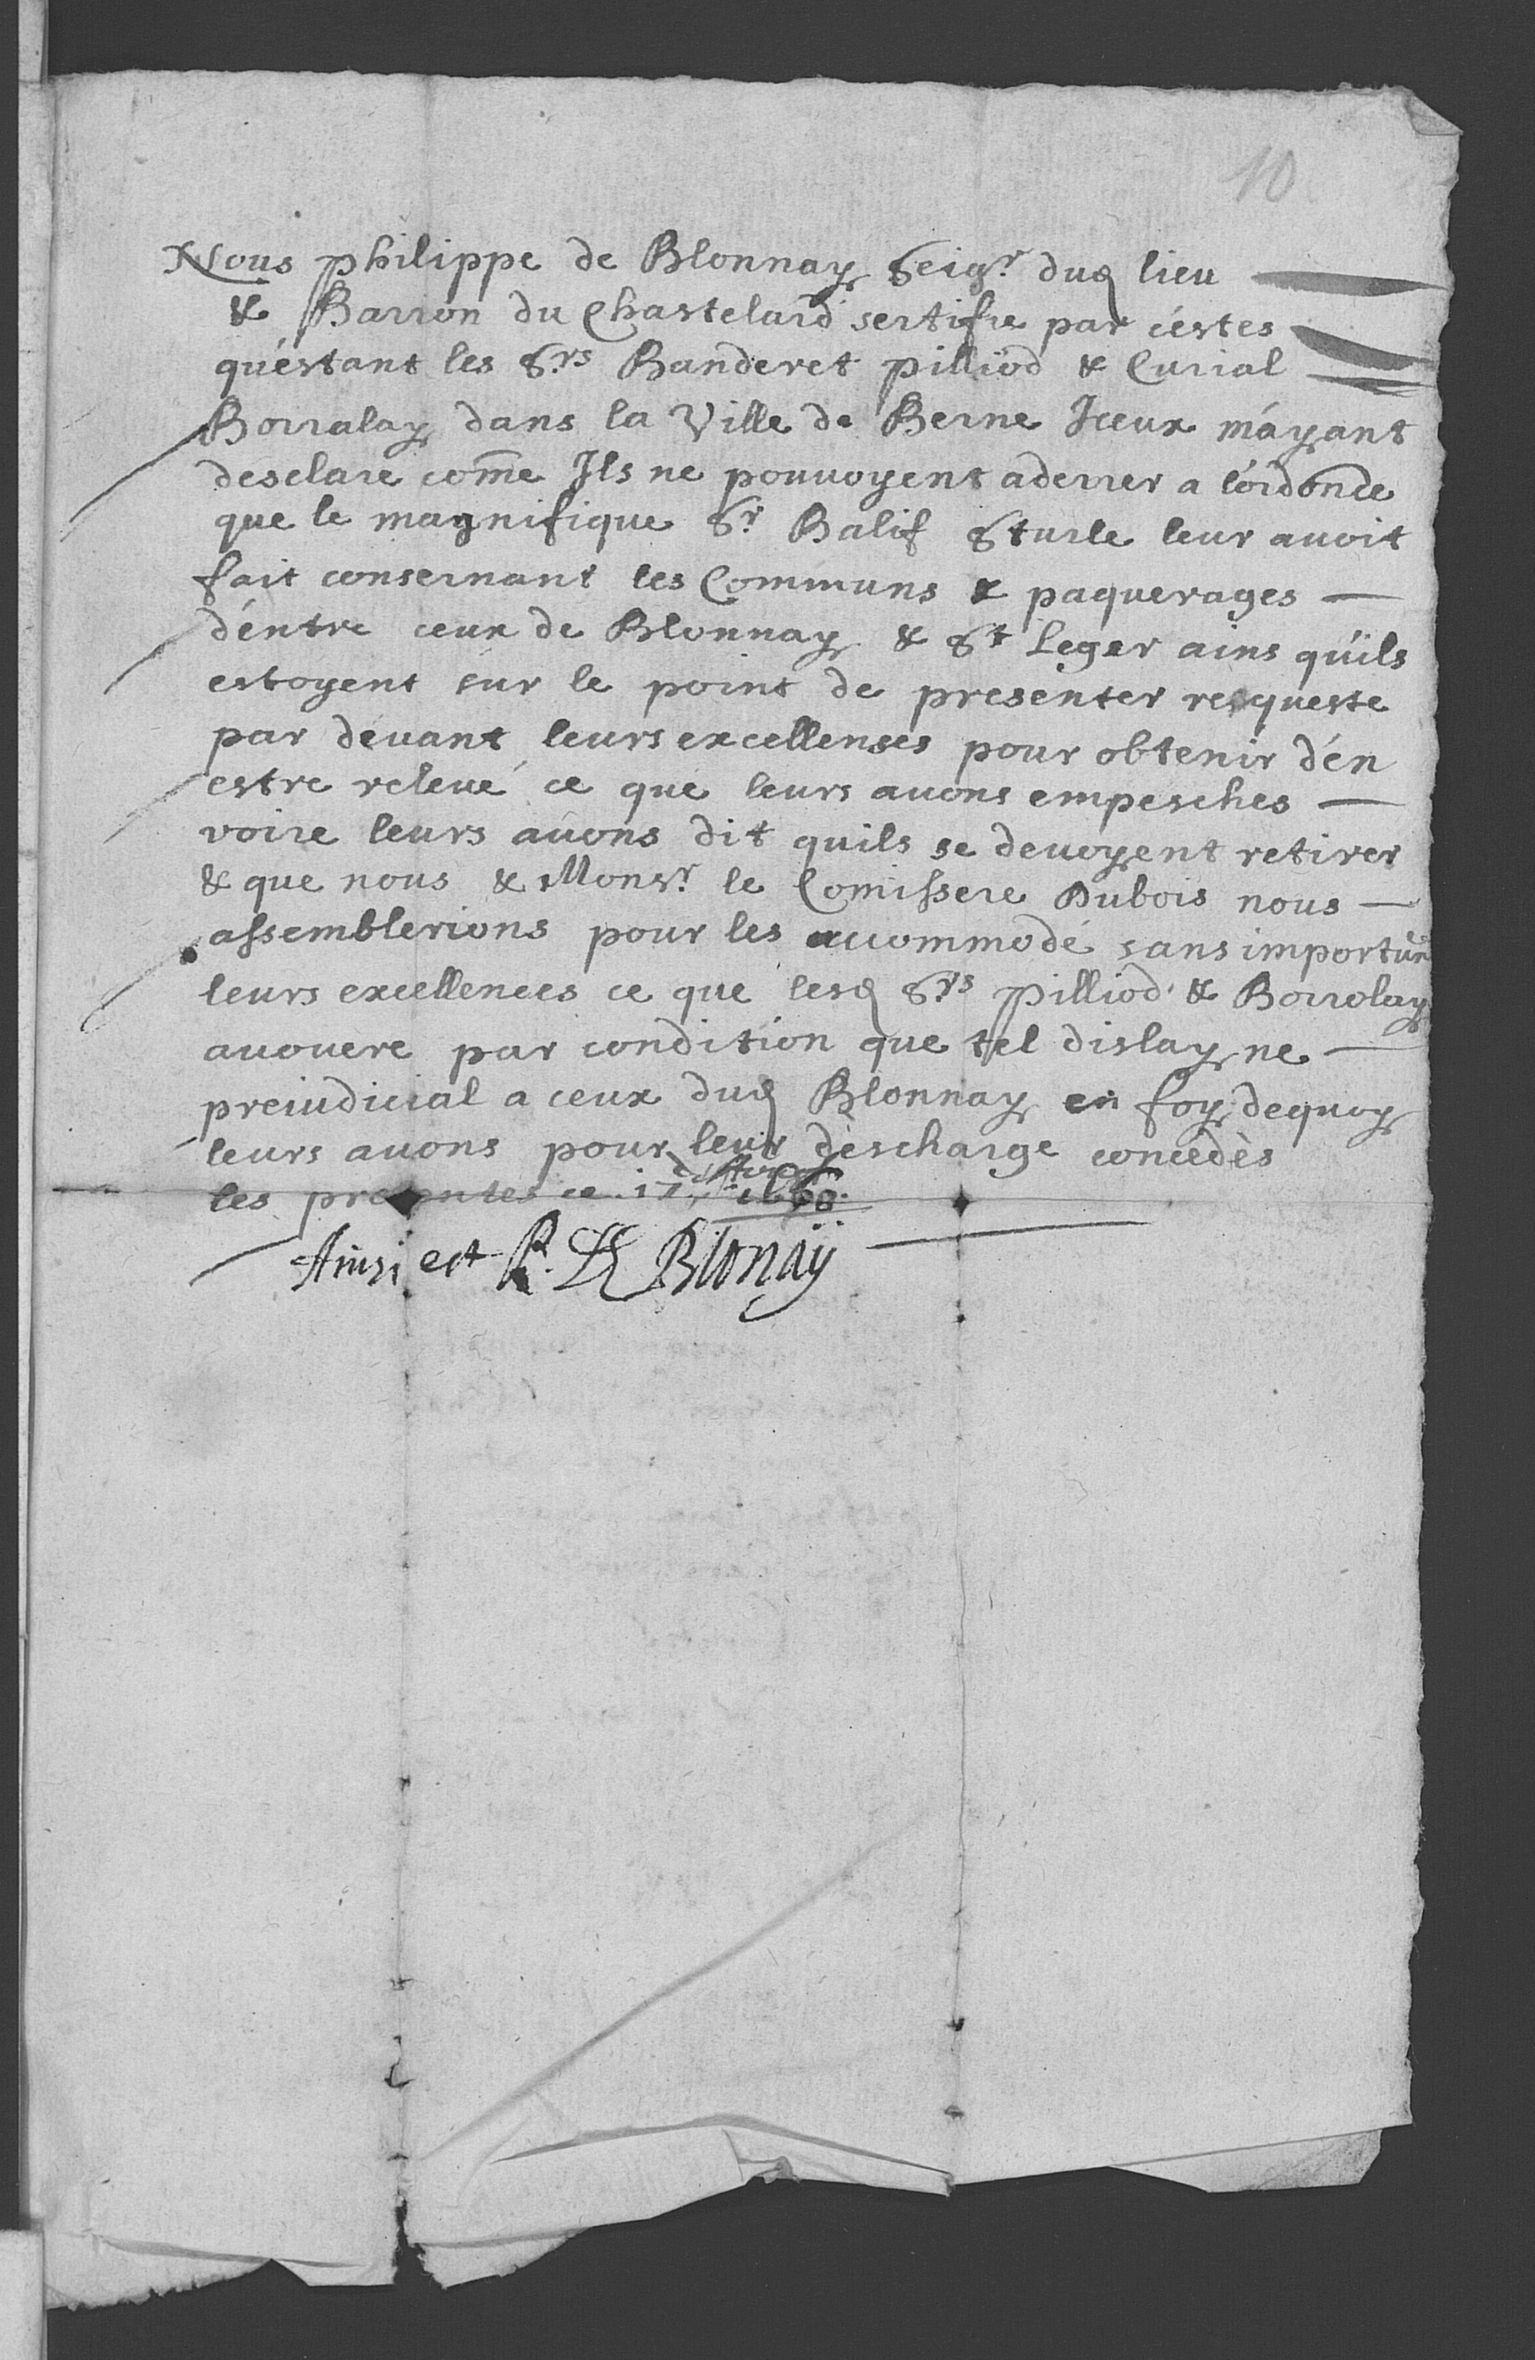 10
Nous philippe de Blonnay Seigr dud lieu
& Barron du Chastelard sertifie par cèstes
qu'estant les Srs Banderet pilliod & Curial
Borralay dans la Ville de Berne Iceux m'áyant
desclare come Ils ne pouvoyent aderrer a l'ordonce
que le magnifique Sr Balif Sturle leur avoit
fait consernant les Communs & paquerages —
d'entre ceux de Blonnay & St Leger ains qu'ils
estoyent sur le point de presenter resqueste
par devant leurs excellenses pour obtenir d'en
estre relevé ce que leurs avons empesches —
voire leurs avons dit quils se devoyent retirer
& que nous & Monsr le Comissere Dubois nous —
assemblerions pour les accommodé sans importun
leurs excellences ce que lesd Srs Pilliod & Borrolay
avouere par condition que tel dislay ne —
preiudicial a ceux dud Blonnay en foy dequoy
leurs avons pour leur descharge concèdès
les presentes ce
Ainsi est P. De Blonay